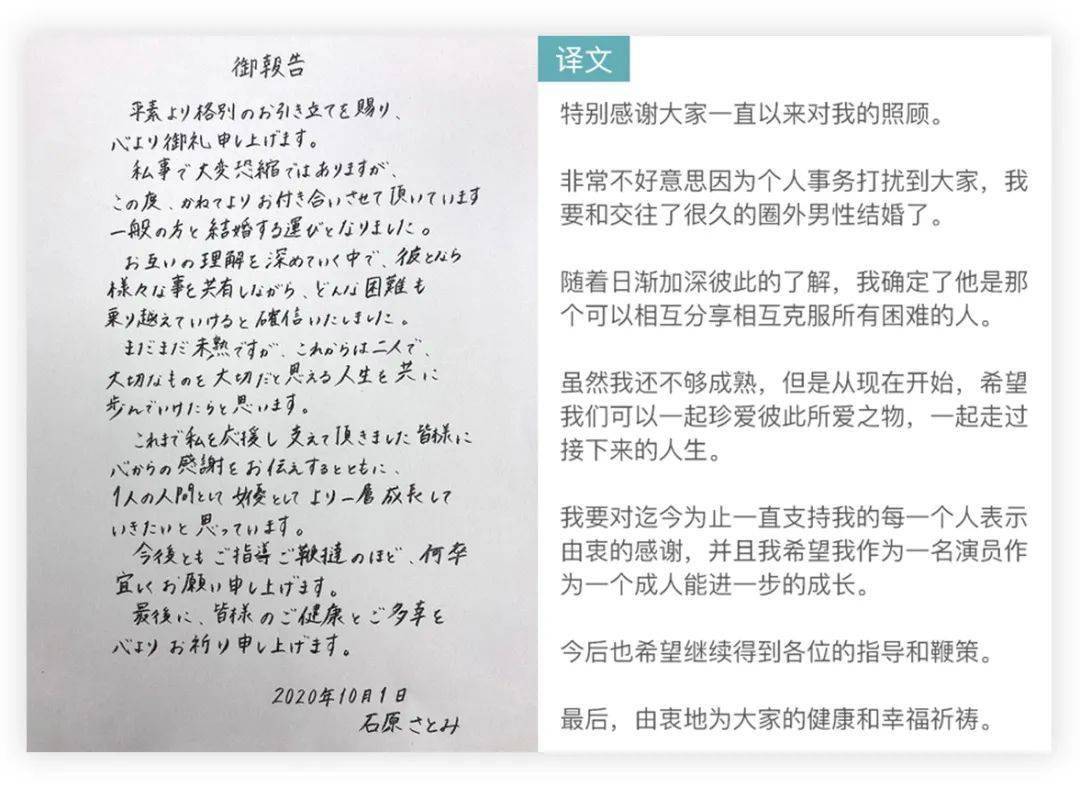 御報告
平素より格別のお引き立てを賜り、
心より御礼申し上げます。
私事で大変恐縮ではありますが、
この度、かねてよりお付き合いさせて頂いています
一般の方と結婚する運びとなりました。
お互いの理解を深めていく中で、彼となら
様々な事を共有しながら、どんな困難も
乗り越えていけると確信いたしました。
まだまだ未熟ですが、これからは二人で、
大切なものを大切だと思える人生を共に
歩んでいけたらと思います。
これまで私を応援し支えて頂きました皆様に
心からの感謝をお伝えするとともに、
1人の人間として女優としてより一層成長して
いきたいと思っています。
今後ともご指導ご鞭撻のほど、何卒
宜しくお願い申し上げます。
最後に、皆様のご健康とご多幸を
心よりお祈り申し上げます。
2020年10月1日
石原さとみ
译文
特别感谢大家一直以来对我的照顾。
非常不好意思因为个人事务打扰到大家，我
要和交往了很久的圈外男性结婚了。
随着日渐加深彼此的了解，我确定了他是那
个可以相互分享相互克服所有困难的人。
虽然我还不够成熟，但是从现在开始，希望
我们可以一起珍爱彼此所爱之物，一起走过
接下来的人生。
我要对迄今为止一直支持我的每一个人表示
由衷的感谢，并且我希望我作为一名演员作
为一个成人能进一步的成长。
今后也希望继续得到各位的指导和鞭策。
最后，由衷地为大家的健康和幸福祈祷。